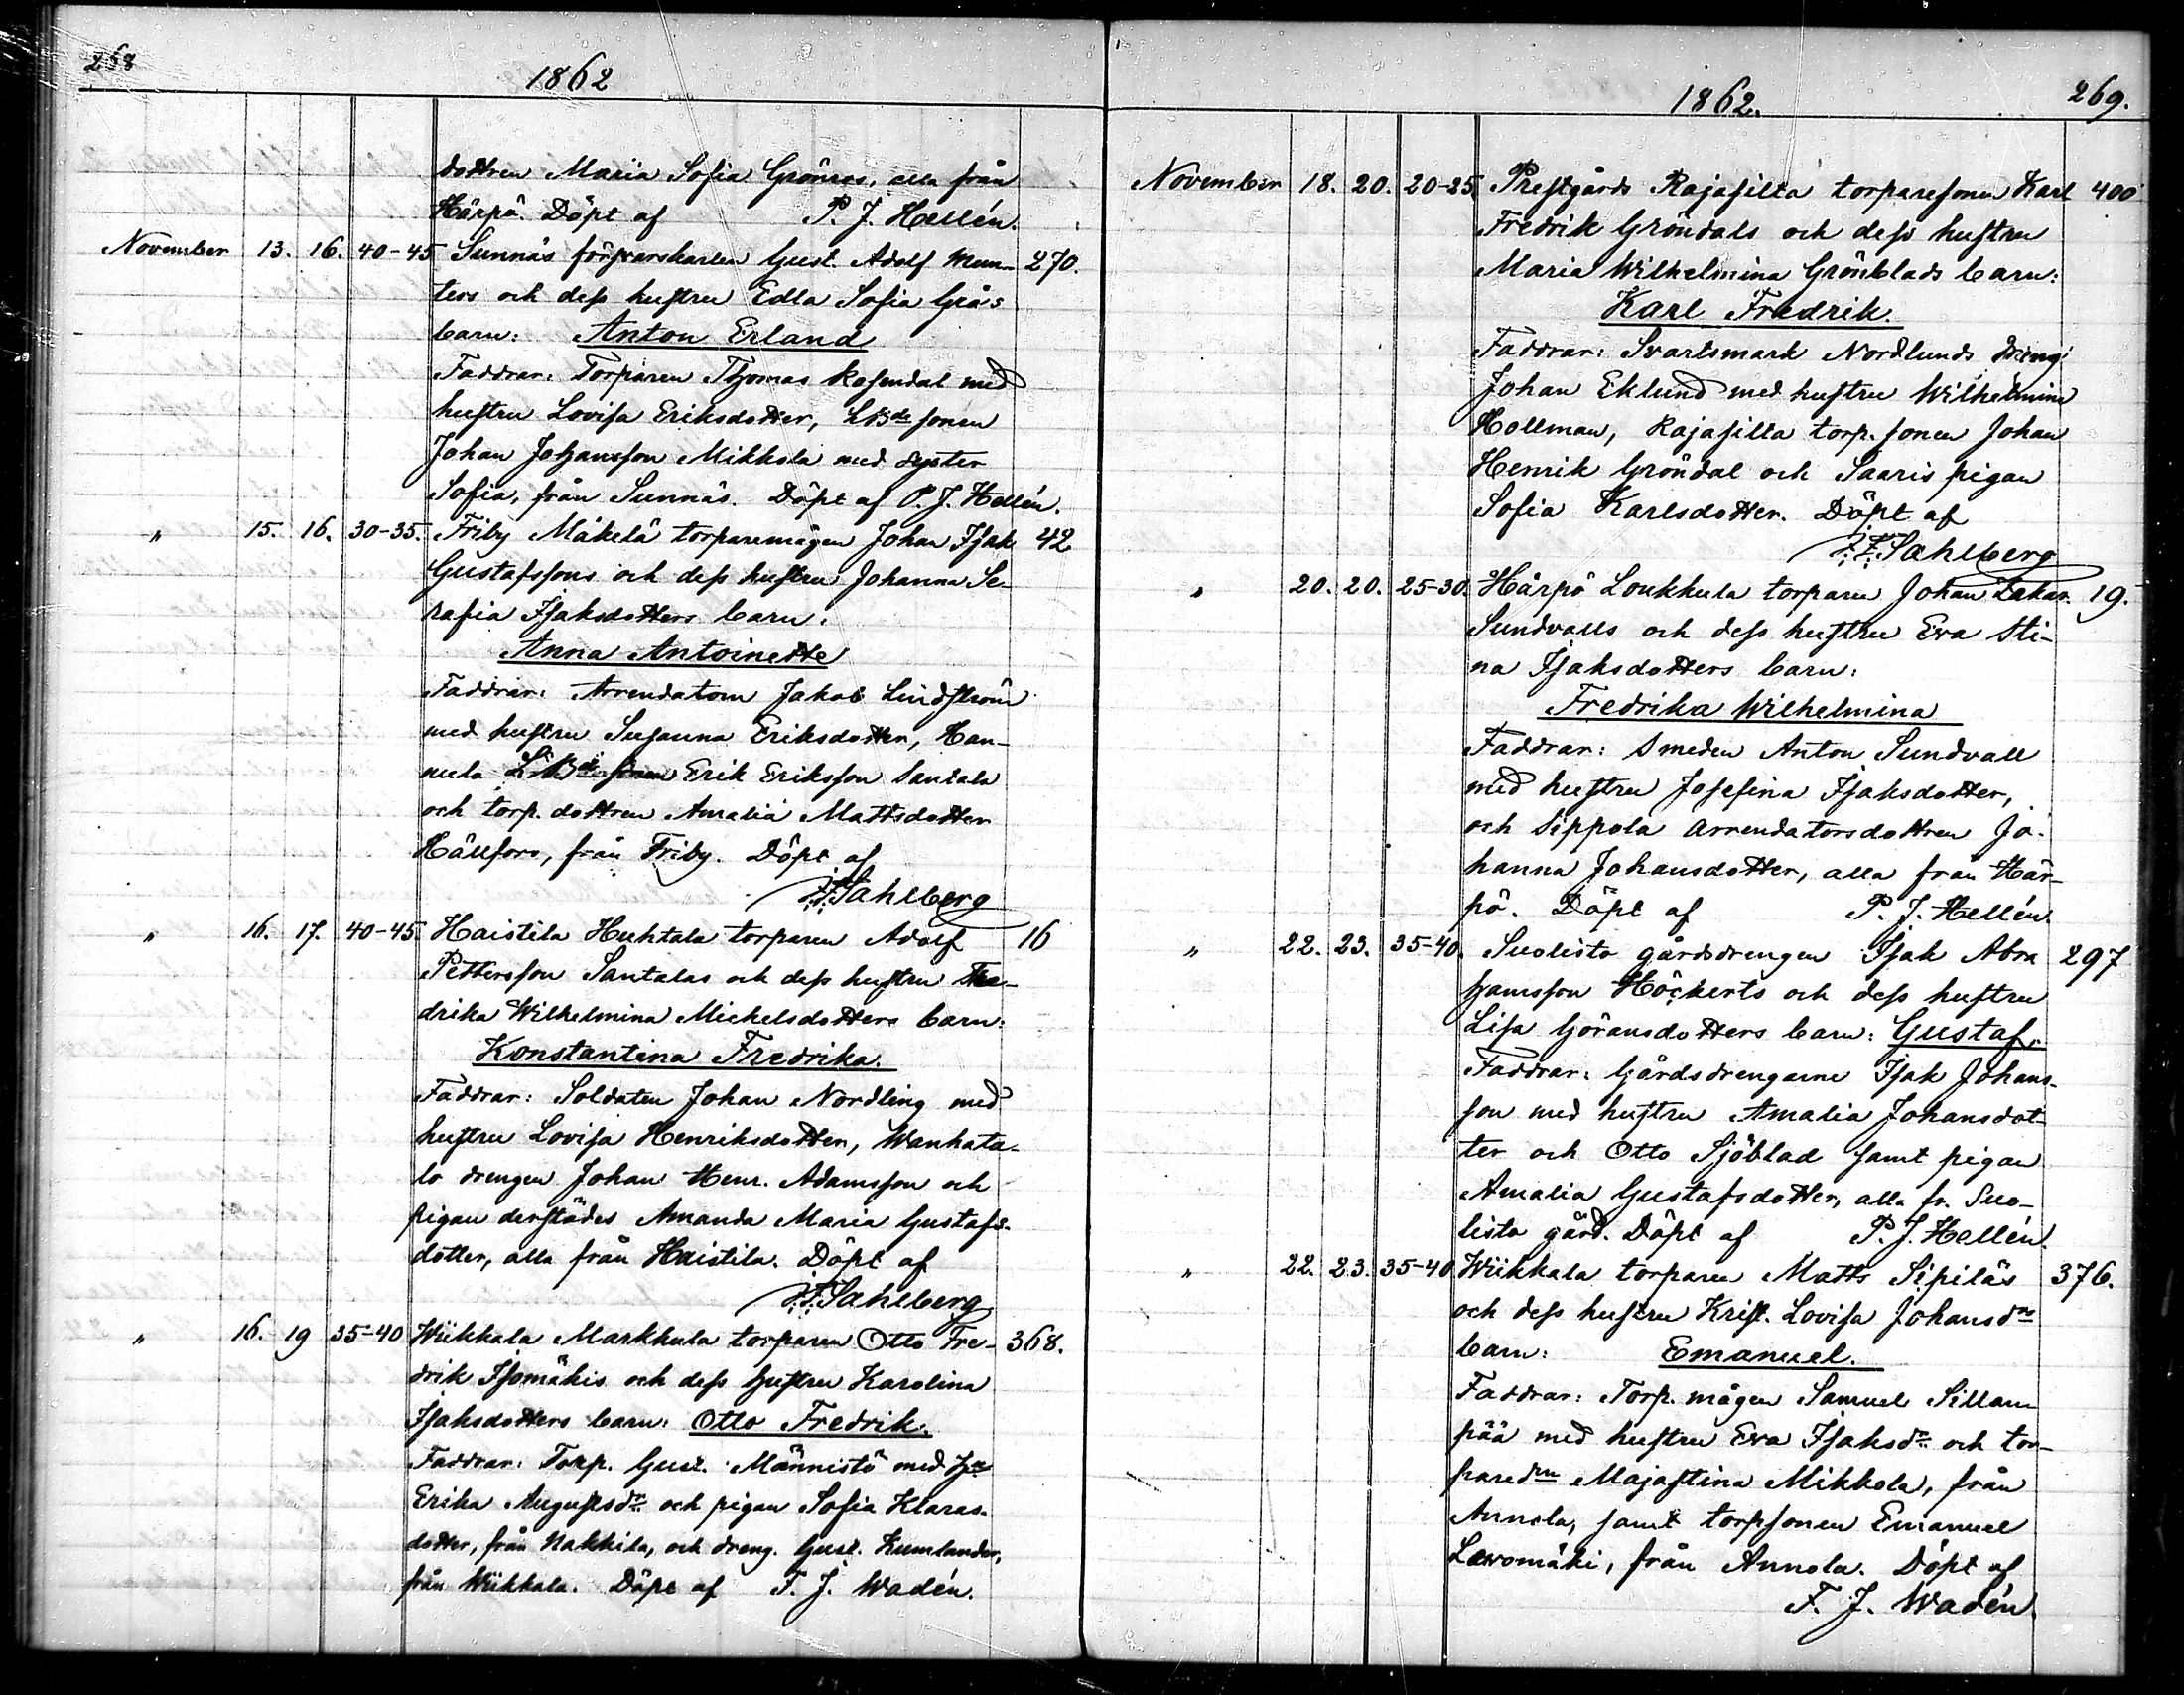 268
1862
dottren Maria Sofia Grönroos, alla från
Härpö. Döpt af P. J. Hellén.
November 13. 16. 40-45 Sunnäs försvarskarlen Gust. Adolf Mun- 270.
ters och dess hustru Edla Sofia Grås
barn: Anton Erland
Faddrar: Torparen Thomas Rosendal med
hustru Lovisa Eriksdotter, LBde sonen
Johan Johansson Mikkola med syster
Sofia, från Sunnäs. Döpt af P. J. Hellén.
" 15. 16. 30-35. Friby Mäkelä torparemågen Johan Isak 42
Gustafssons och dess hustru Johanna Se-
rafia Isaksdotters barn:
Anna Antoinette
Faddrar: Arrendatorn Jakob Lindström
med hustru Susanna Eriksdotter, Han-
nula Erik Eriksson Santala
och torp. dottren Amalia Mattsdotter
Hällfors, från Friby. Döpt af
F. F. Sahlberg
" 16. 17. 40-45. Haistila Huhtala torparen Adolf 16
Pettersson Santalas och dess hustru Fre-
drika Wilhelmina Mickelsdotters barn:
Konstantina Fredrika.
Faddrar: Soldaten Johan Nordling med
hustru Lovisa Henriksdotter, Wanhata-
lo drengen Johan Henr. Adamsson och
pigan derstädes Amanda Maria Gustafs-
dotter, alla från Haistila. Döpt af
F. F. Sahlberg
" 16. 19 35-40 Wiikkala Markkula torparen Otto Fre- 368.
drik Isomäkis och dess hustru Karolina
Isaksdotters barn: Otto Fredrik.
Faddrar: Torp. Gust. Männistö med h:u
Erika Augustsdr och pigan Sofia Klaras-
dotter, från Nakkila, och dreng. Gust. Kumlander,
från Wiikkala. Döpt af F. J. Wadén.
1862. 269.
November 18. 20. 20-25. Prestgårds Rajasilta torparesonen Karl 400
Fredrik Gröndals och dess hustru
Maria Wilhelmina Grönblads barn:
Karl Fredrik.
Faddrar: Svartsmark Nordlunds dreng.
Johan Eklund med hustru Wilhelmina
Hollman, Rajasilta torp. sonen Johan
Henrik Gröndal och Saaris pigan
Sofia Karlsdotter. Döpt af
F. F. Sahlberg
" 20. 20. 25-30. Härpö Loukkula torparen Johan Zakar. 19.
Sundvalls och dess hustru Eva Sti-
na Isaksdotters barn:
Fredrika Wilhelmina
Faddrar: Smeden Anton Sundvall
med hustru Josefina Isaksdotter,
och Sippola arrendatorsdottren Jo-
hanna Johansdotter, alla från Här-
pö. Döpt af P. J. Hellén.
" 22. 23. 35-40. Suolisto gårdsdrengen Isak Abra 297
hamsson Höckerts och dess hustru
Lisa Göransdotters barn: Gustaf.
Faddrar: Gårdsdrengarne Isak Johans-
son med hustru Amalia Johansdot-
ter och Otto Sjöblad samt pigan
Amalia Gustafsdotter, alla fr. Suo-
listo gård. Döpt af P. J. Hellén.
" 22. 23. 35-40 Wiikkala torparen Matts Sipiläs 376.
och dess hustru Krist. Lovisa Johansdrs
barn: Emanuel.
Faddrar: Torp. mågen Samuel Sillan-
pää med hustru Eva Isaksdr och tor-
paredrn Majastina Mikkola, från
Annola, samt torpsonen Emanuel
Levomäki, från Annola. Döpt af
F. J. Wadén.